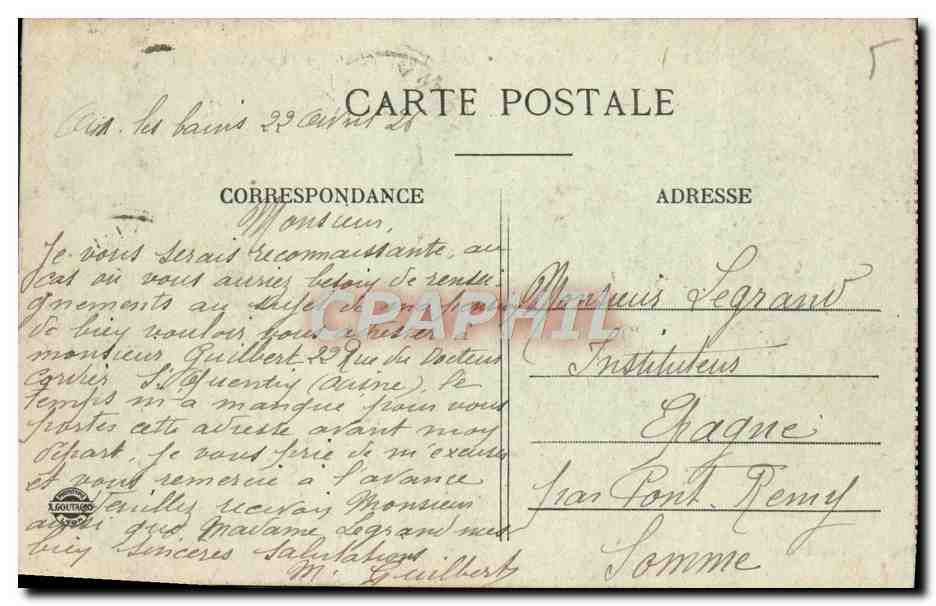 CARTE POSTALE
Aix. les bains 22 Avril 26
CORRESPONDANCE
Monsieur,
Je vous serais reconnaissante, au
cas où vous auriez besoin de rensei
gnements au sujet de
de bien vouloir vous adresser à
monsieur Guilbert 22 Rue du Docteur
Cordier St Quentin (Aisne), le
temps m'a manqué pour vous
portes cette adresse avant moy
départ, je vous prie de m'excuser
et vous remercie à l'avance
Veuillez recevoir Monsieur
ainsi que Madame Legrand mes
bien sincères salutations
M. Guilbert
ADRESSE
Monsieur Legrand
Instituteur
Epagne
par Pont Remy
Somme
X. GOUTAGNY
LYON
CPAPHIL
5